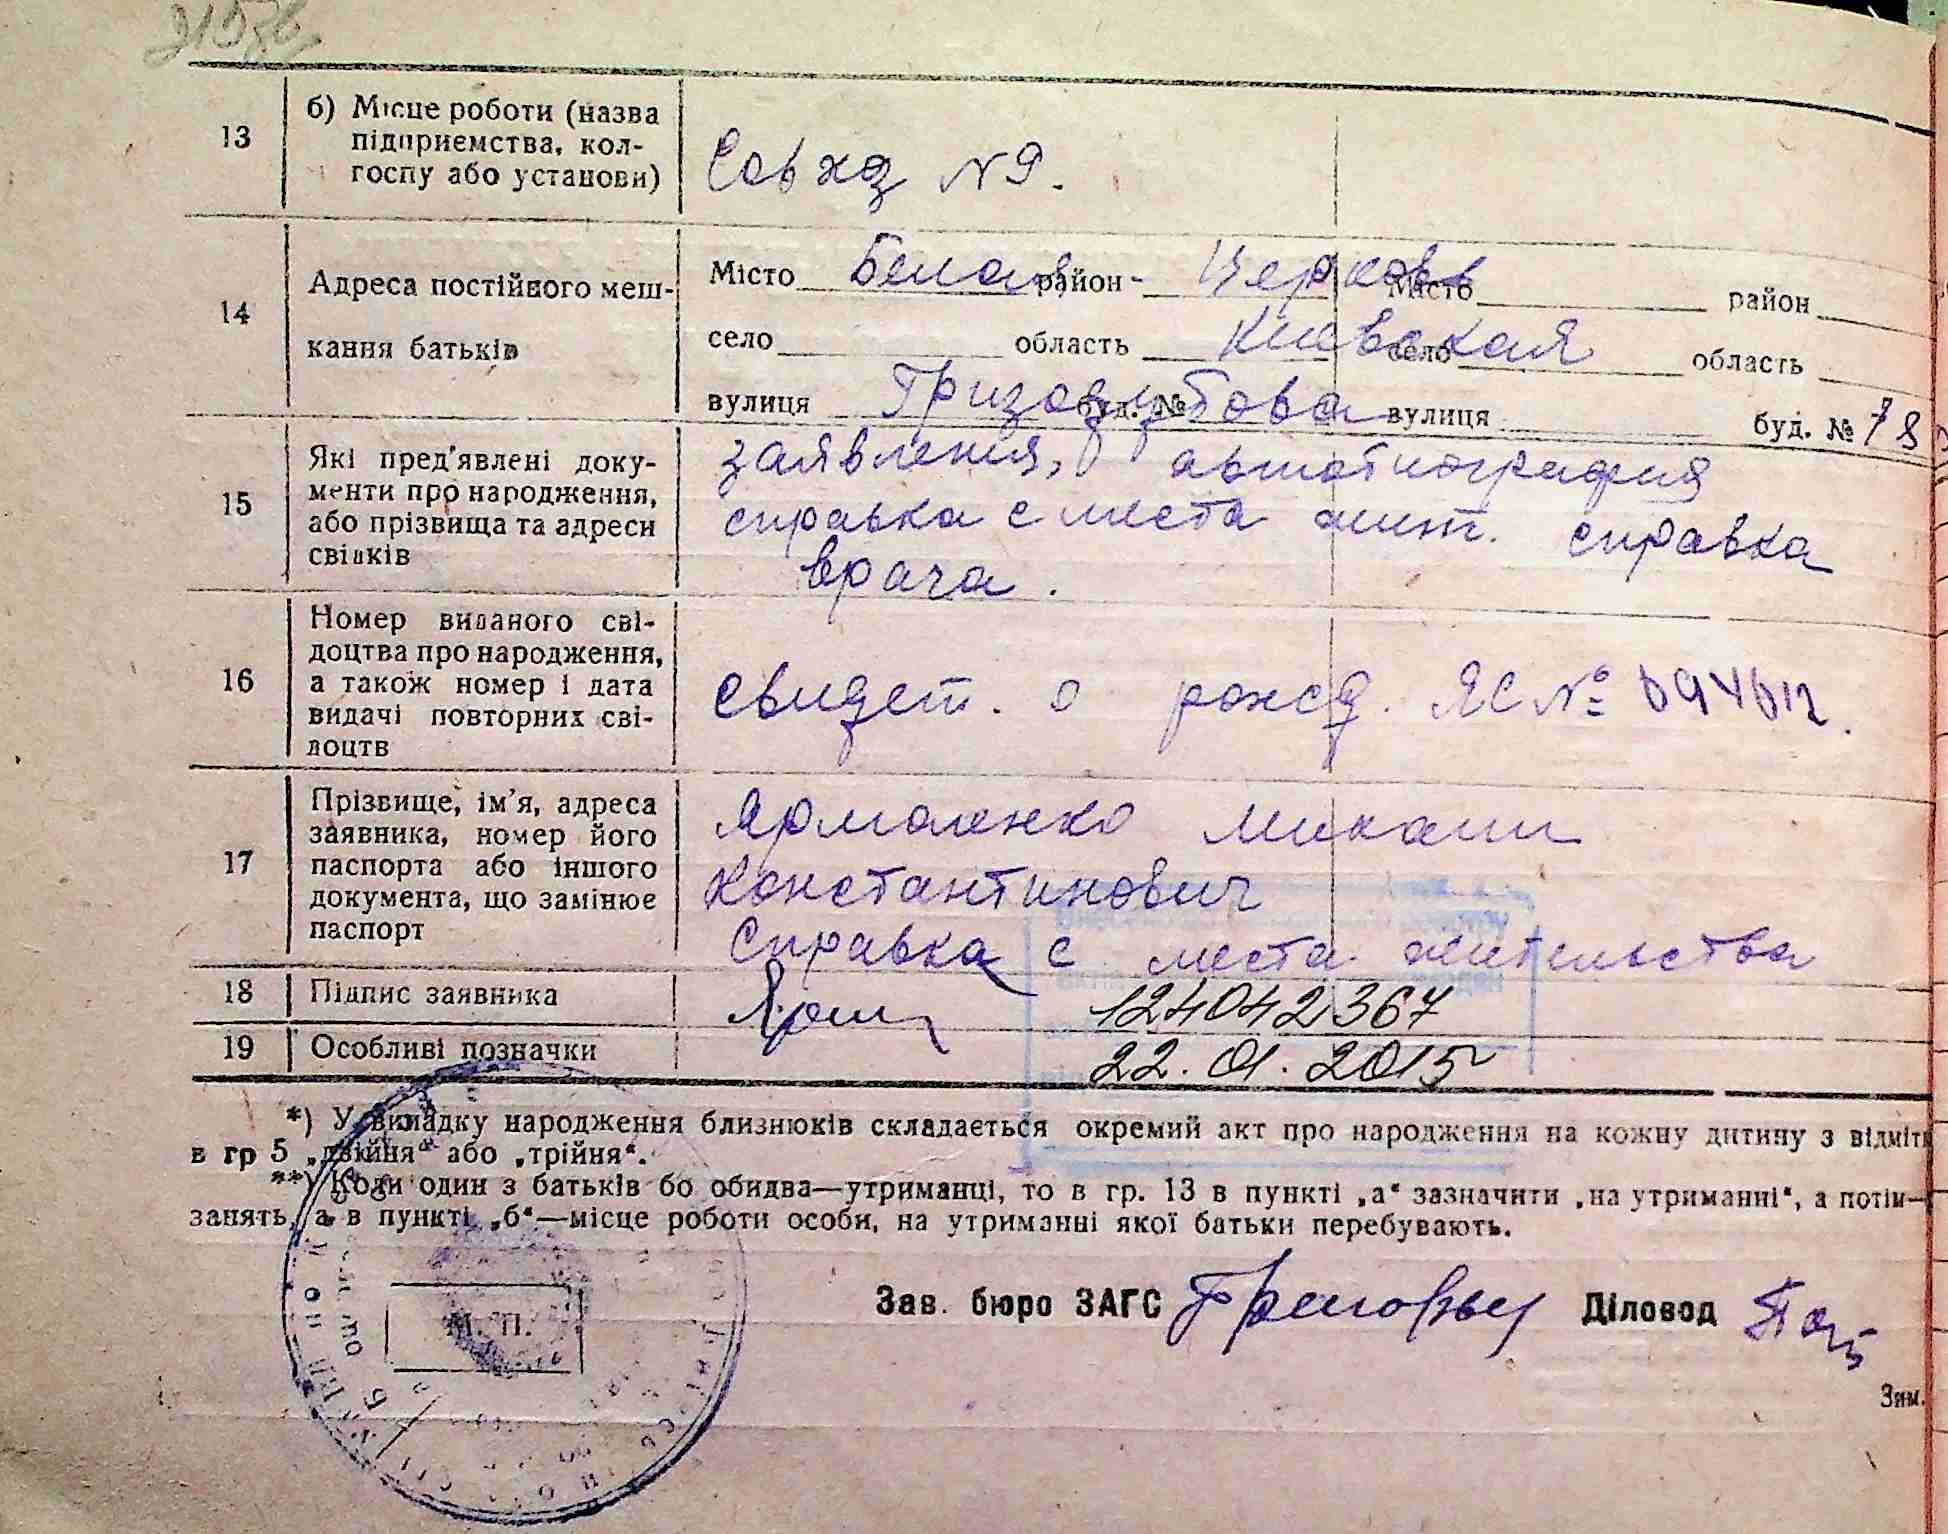 13
б) Місце роботи (назва
підприємства, кол-
госпу або установи)
Совхз №9.
14
Адреса постійного меш-
кання батьків
Місто Белая район - Церковь Місто район
село область Киевская село область
вулиця Гризодубова буд. № вулиця буд. № 78
15
Які пред'явлені доку-
менти про народження,
або прізвища та адреси
свідків
заявления,
справка с места жит. справка
врача.
16
Номер виданого сві-
доцтва про народження,
а також номер і дата
видачі повторних сві-
доцтв
свидет. о рожд. ЯС №
17
Прізвище, ім'я, адреса
заявника, номер його
паспорта або іншого
документа, що замінює
паспорт
Ярмоленко Михаил
Константинович
Справка с места жительства
18 Підпис заявника
124042367
19 Особливі позначки
22.01.2015
*) У випадку народження близнюків складається окремий акт про народження на кожну дитину з відміт
в гр 5 „двійня“ або „трійня“.
**) Коли один з батьків бо обидва—утриманці, то в гр. 13 в пункті „а“ зазначити „на утриманні“, а потім—
занять, а в пункті „б“—місце роботи особи, на утриманні якої батьки перебувають.
М. П.
Зав. бюро ЗАГС Діловод
Зим.